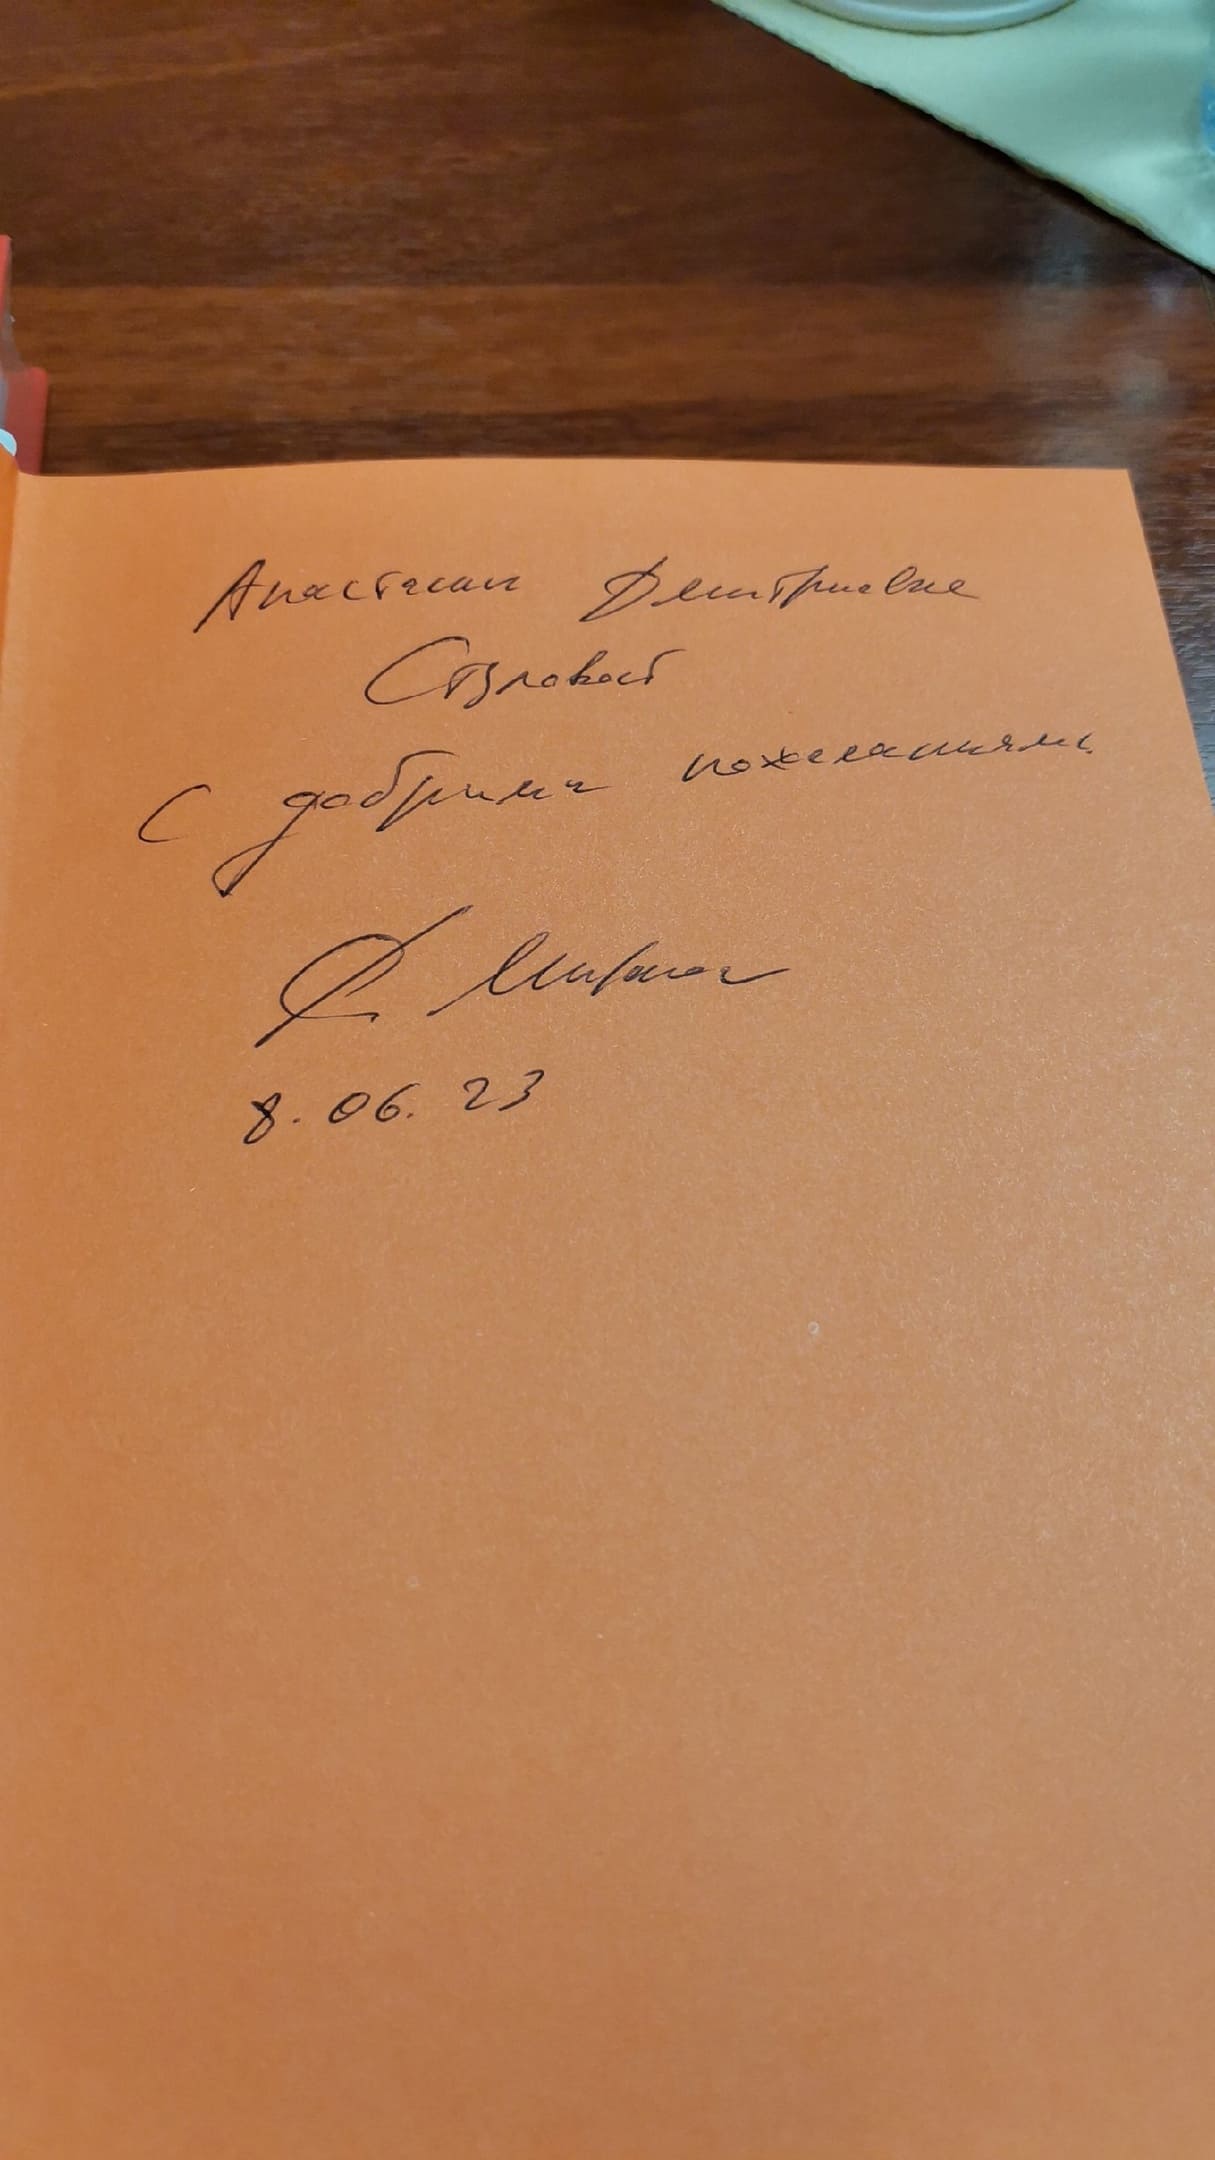 Анастасии Дмитриевне
С добрыми пожеланиями
8.06.23